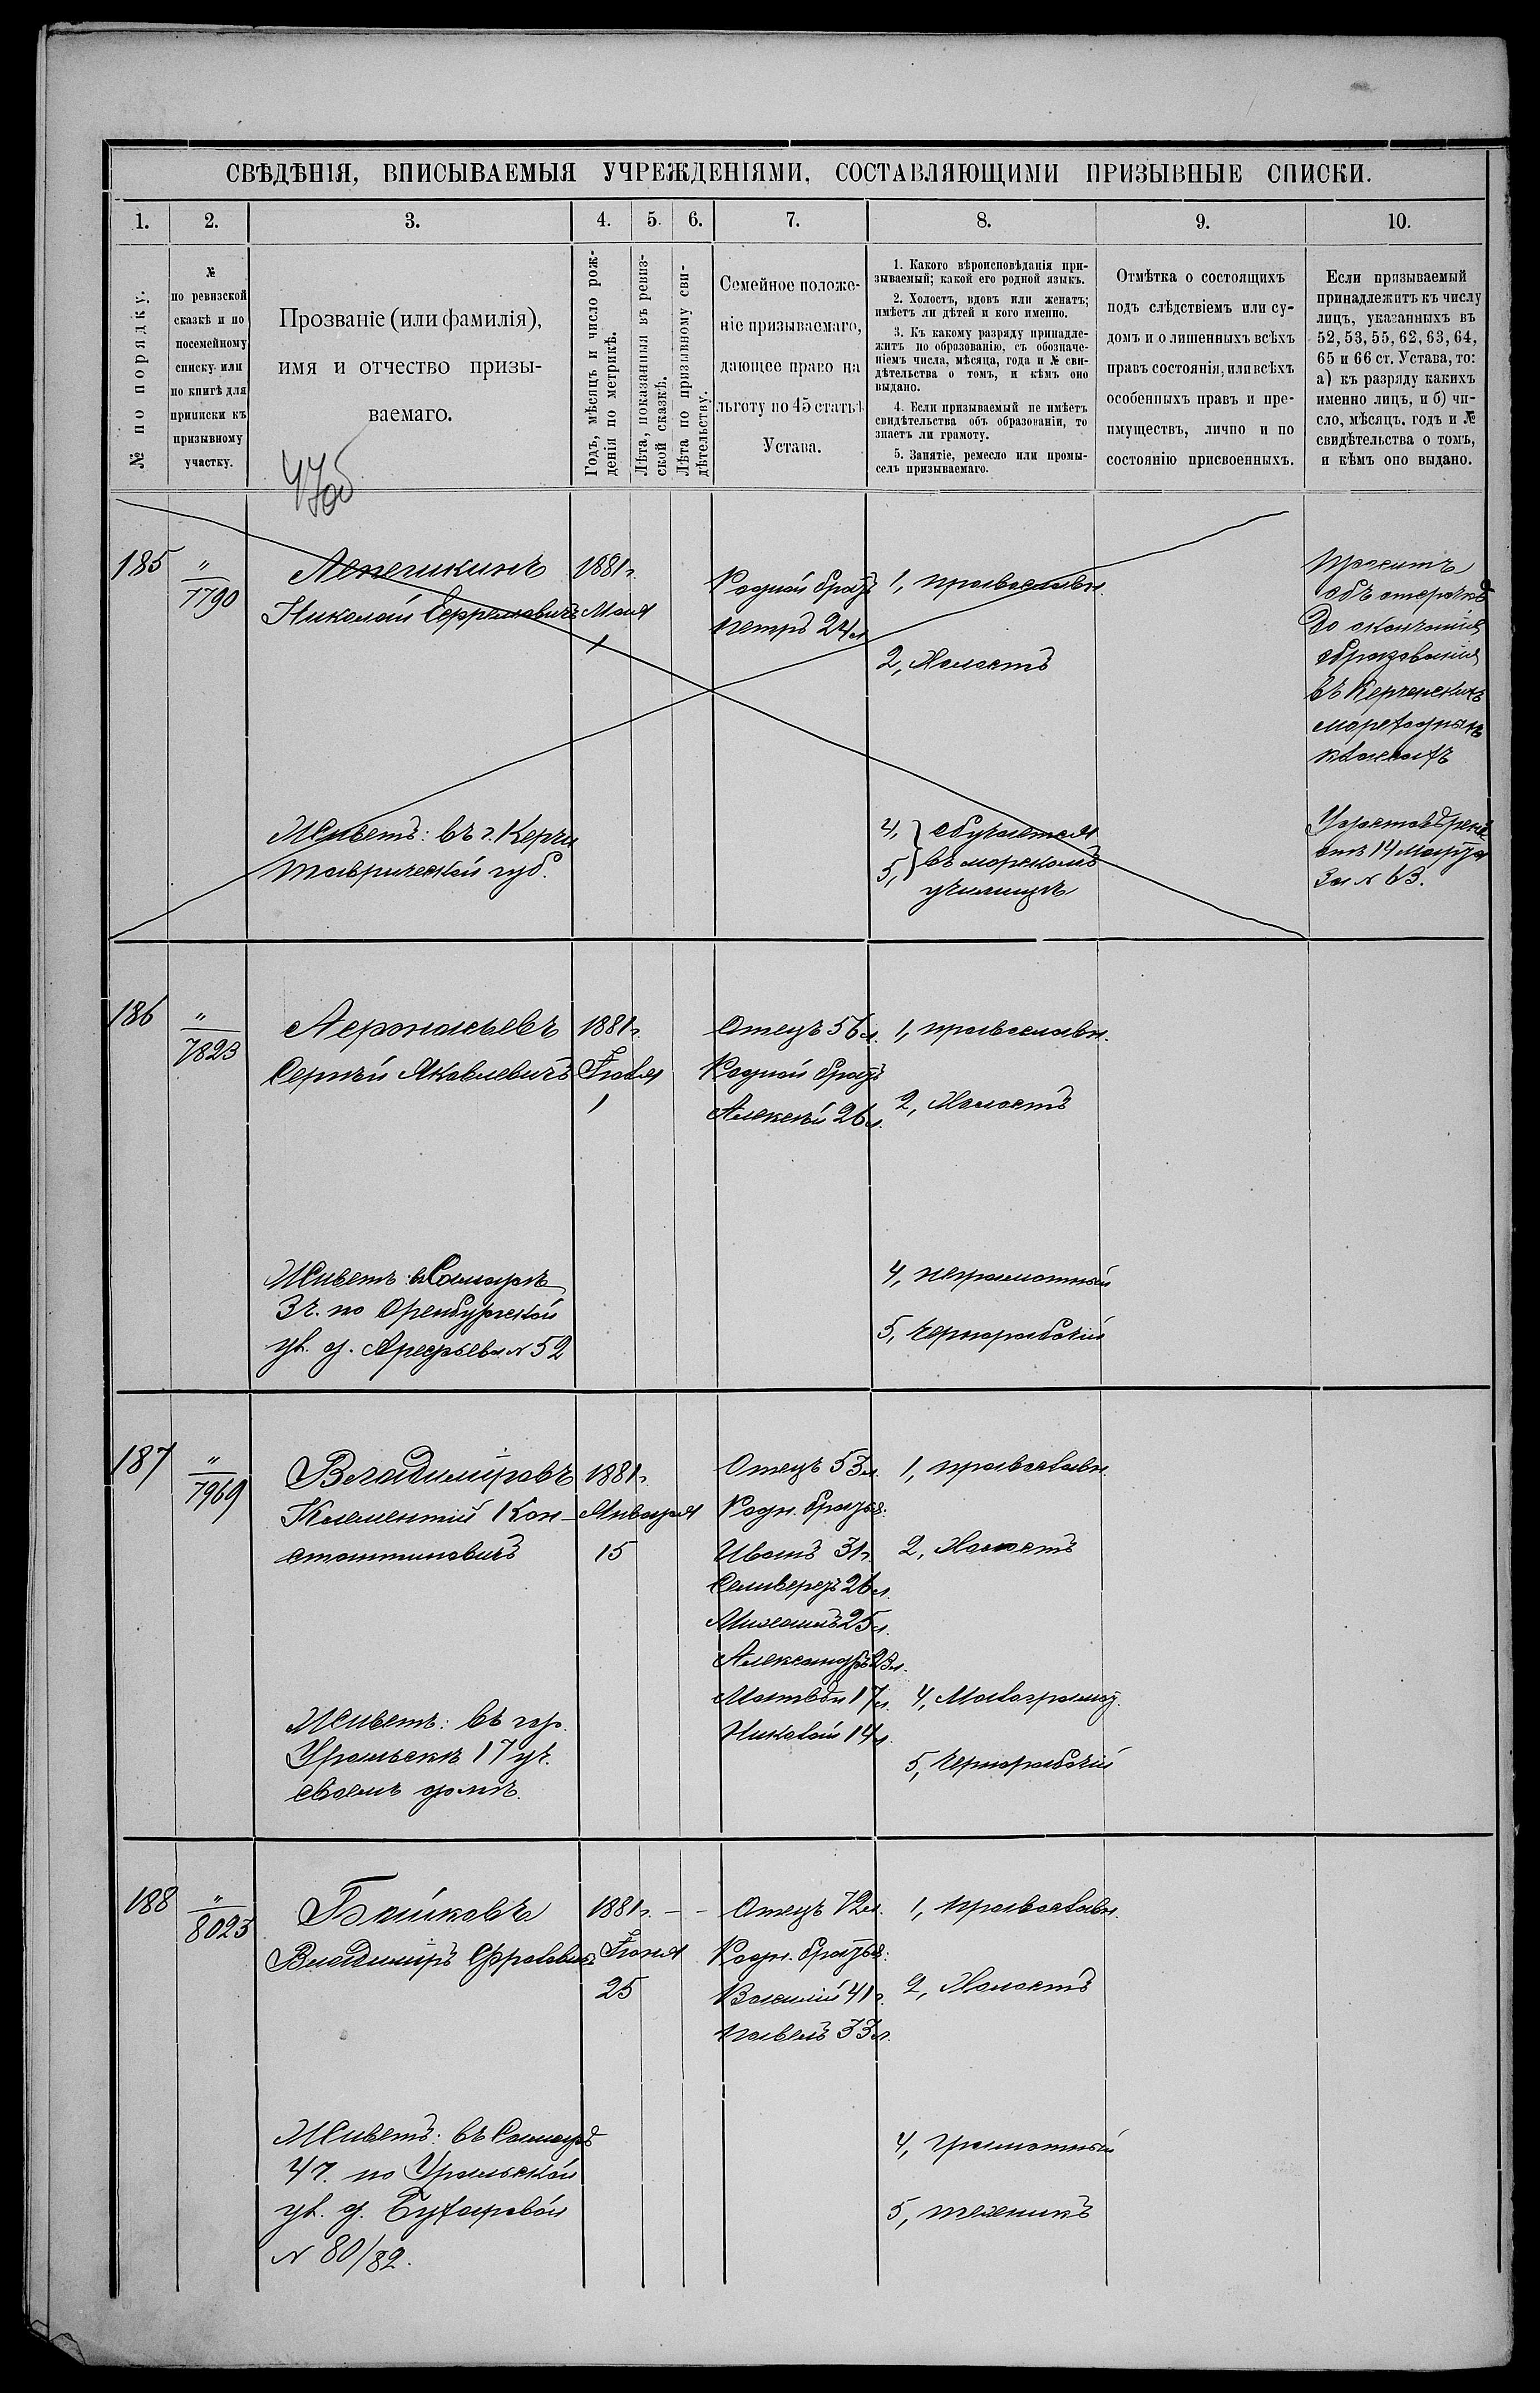 СВѢДѢНІЯ, ВПИСЫВАЕМЫЯ УЧРЕЖДЕНІЯМИ, СОСТАВЛЯЮЩИМИ ПРИЗЫВНЫЕ СПИСКИ.
1. 2. 3. 4. 5. 6. 7. 8. 9. 10.
№ по порядку.
№
по ревизской
сказкѣ и по
посемейному
списку или
по книгѣ для
приписки къ
призывному
участку.
Прозваніе (или фамилія),
имя и отчество призы-
ваемаго.
Годъ, мѣсяцъ и число рож-
денія по метрикѣ.
Лѣта, показанныя въ ревиз-
ской сказкѣ.
Лѣта по призывному сви-
дѣтельству.
Семейное положе-
ніе призываемаго,
дающее право на
льготу по 45 статьѣ
Устава.
1. Какого вѣроисповѣданія при-
зываемый; какой его родной языкъ.
2. Холостъ, вдовъ или женатъ;
имѣетъ ли дѣтей и кого именно.
3. Къ какому разряду принадле-
житъ по образованію, съ обозначе-
ніемъ числа, мѣсяца, года и № сви-
дѣтельства о томъ, и кѣмъ оно
выдано.
4. Если призываемый не имѣетъ
свидѣтельства объ образованіи, то
знаетъ ли грамоту.
5. Занятіе, ремесло или промы-
селъ призываемаго.
Отмѣтка о состоящихъ
подъ слѣдствіемъ или су-
домъ и о лишенныхъ всѣхъ
правъ состоянія, или всѣхъ
особенныхъ правъ и пре-
имуществъ, лично и по
состоянію присвоенныхъ.
Если призываемый
принадлежитъ къ числу
лицъ, указанныхъ въ
52, 53, 55, 62, 63, 64,
65 и 66 ст. Устава, то:
а) къ разряду какихъ
именно лицъ, и б) чи-
сло, мѣсяцъ, годъ и №
свидѣтельства о томъ,
и кѣмъ оно выдано.
185
"
7790
Лепешкинъ
Николай Ефремовичъ
1881г.
Мая
1
Родной братъ
Петръ 24л
1, православн.
2, Холостъ
Живетъ: въ г. Керчи
Таврической губ.
4,
5,
обучается
въ морскомъ
училищѣ
Проситъ
объ отсрочкѣ
до окончанія
образованія
въ Керченскихъ
мореходныхъ
классахъ
отъ 14 Марта
за № 63.
186
"
7823
Афонасьевъ
Сергѣй Яковлевичъ
1881г.
Іюля
1
Отецъ 56л.
Родной братъ
Алексѣй 26л.
1, православн.
2, Холостъ
Живетъ: въ Самарѣ
3ч. по Оренбургской
ул. д. Арефьева № 52
4, неграмотный
5, чернорабочій
187
"
7969
Владиміровъ
Климентій Кон-
стантиновичъ
1881г.
Января
15
Отецъ 53л.
Родн. братья:
Иванъ 31г.
Селиверстъ 26л.
Михаилъ 25л.
Александръ 23л.
Матвѣй 17л.
Николай 14л.
1, православн.
2, Холостъ
Живетъ: въ гор.
Уральскѣ 17 уч.
своемъ домѣ.
4, Малограмот.
5, чернорабочій
188
"
8023
Байковъ
Владиміръ Фроловичъ
1881г. – –
Іюня
25
Отецъ 72л.
Родн. братья:
Василій 41г.
Павелъ 33л.
1, православн.
2, Холостъ
Живетъ: въ Самарѣ
4ч. по Уральской
ул. д. Бухаровой
№ 80/82.
4, грамотный
5, техникъ